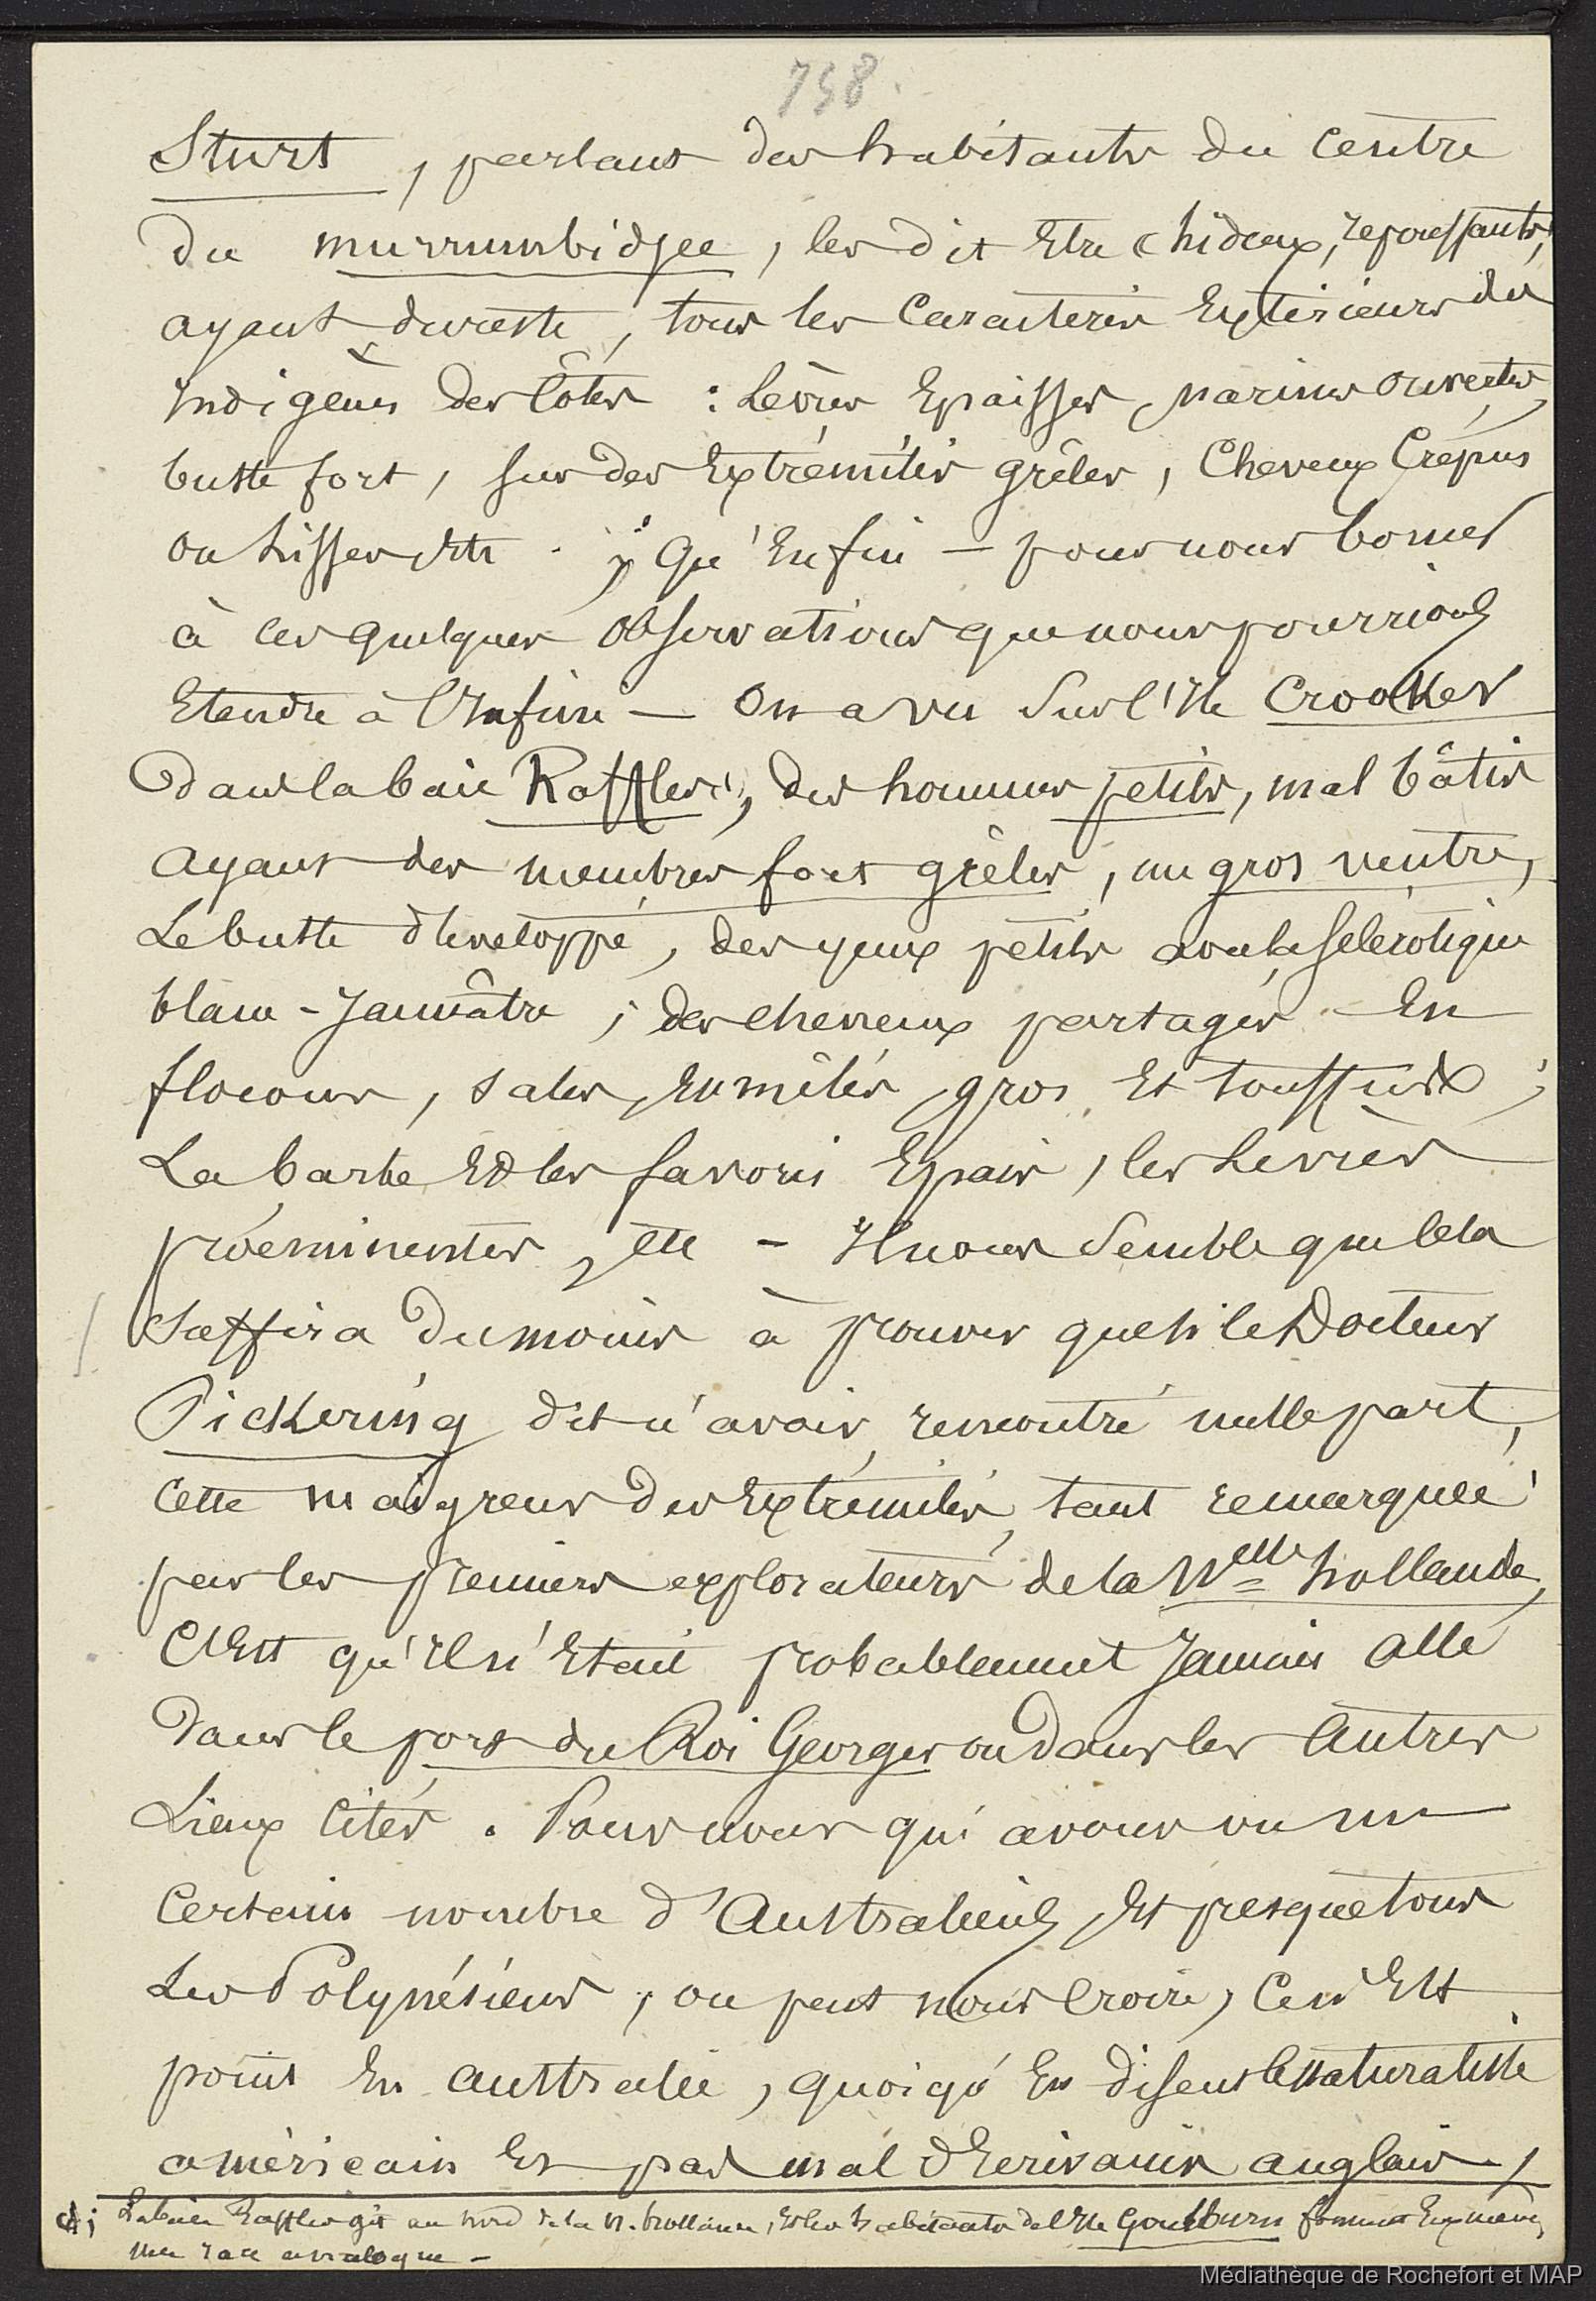 758.
Sturt, parlant des habitants du centre
du murrumbidjee, les dit Etre « hideux, repoussants,
ayant dureste, tous les Caractères Extérieurs des
Indigènes des Côtes : Lèvres Epaisses, narines ouvertes,
buste fort, sur des Extrémités grêles, Cheveux Crépus
ou Lisses etc. ; Qu'Enfin — pour nous borner
à ces quelques observations que nous pourrions
Etendre à l'Infini — On a vu Sur l'Ile Crooker
Dans la baie Raffles, des hommes petits, mal bâtis
ayant des membres fort grêles, un gros ventre,
Le buste développé, des yeux petits avec la Sclérotique
blanc-Jaunâtre ; des cheveux partagés En
flocons, sales, Enmêlés, gros Et touffus ;
La barbe Et les favoris Epais, les Lèvres
proéminentes, etc — Il nous Semble que Cela
Suffira du moins à prouver que si le Docteur
Pickering dit n'avoir rencontré nulle part,
cette maigreur des Extrémités, tant remarquée
par les premiers explorateurs de la Nelle hollande,
C'Est qu'Il n'Etait probablement Jamais allé
Dans le port du Roi Georges ou Dans les Autres
Lieux Cités. Pour nous qui avons vu un
Certain nombre d'Australiens, Et presque tous
Les Polynésiens, on peut nous Croire, Ce n'Est
point En Australie, quoiqu'En disent le naturaliste
américain Et pas mal d'Ecrivains anglais,
La baie Raffles gît au Nord de la N. hollande, Et les habitants de l'Ile Goulburn forment Eux mêmes
une race analogue —
Médiathèque de Rochefort et MAP